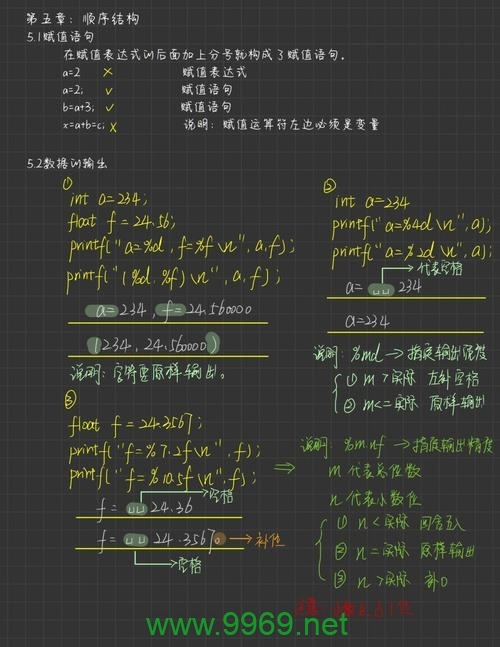 第五章：顺序结构
5.1赋值语句
在赋值表达式训后面加上分号就构成了赋值语句。
a=2 × 赋值表达式
a=2; ✓ 赋值语句
b=a+3; ✓ 赋值语句
x=a+b=c; × 说明：赋值运算符左边必须是变量
5.2数据训输出
①
int a=234;
float f=24.56;
printf("a=%d,f=%f\n",a,f);
printf("(%d,%f)\n",a,f);
a=234,f=24.560000
(234,24.560000)
说明：字符要原样输出。
②
int a=234
printf("a=%4d\n",a);
printf("a=%2d\n",a);
代表空格
a=␣␣234
a=234
说明：%md→指定输出宽度
① m>实际 左补空格
② m<=实际 原样输出
③
float f=24.3567;
printf("f=%7.2f\n",f);
printf("f=%10.5f\n",f);
空格
f=␣␣24.36
f=␣␣24.35670→补位
空格
⇒ 说明：%m.nf→指定输出精度
m 代表总位数
n 代表小数位
① n<实际 四舍五入
② n=实际 原样输出
③ n>实际 补0
www.9969.net